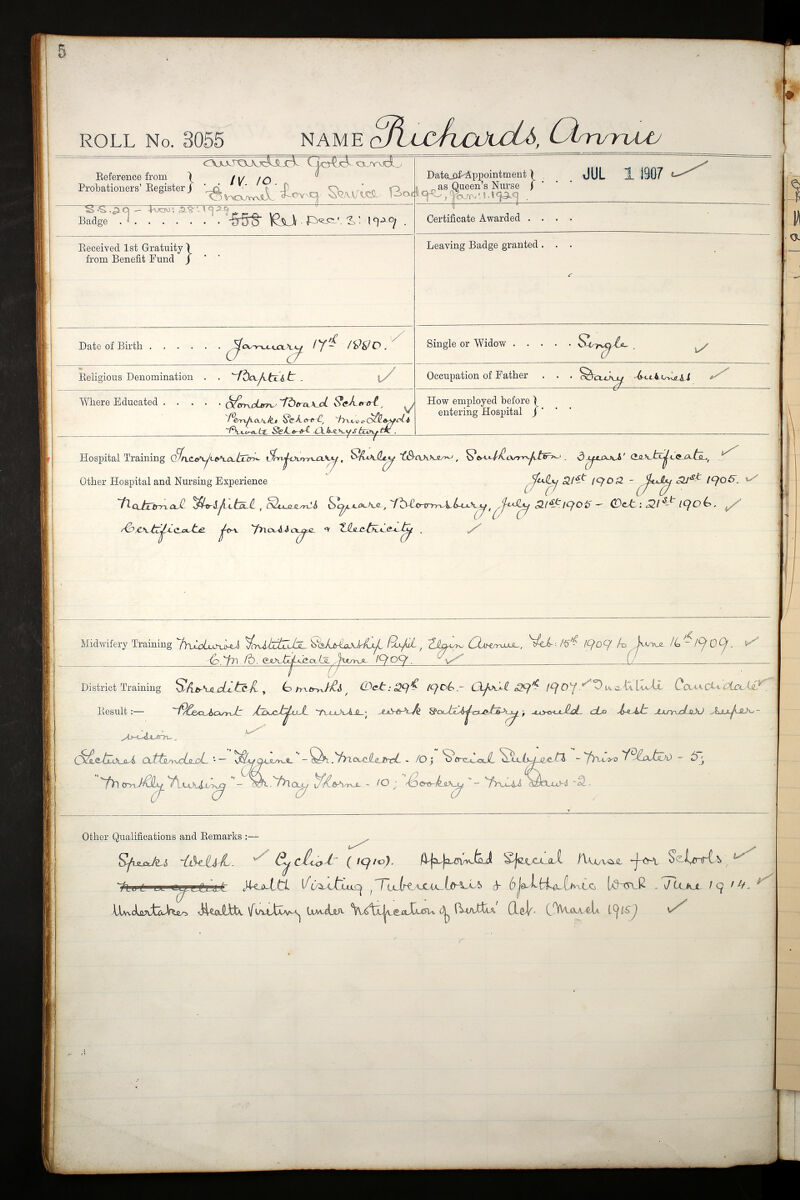 5
ROLL No. 3055 NAME Richards, Annie
Awarded Gold and
Reference from Probationers' Register } IV. 10.
Enamel Long Service Badge, Jan: 1. 1929.
Date of Appointment as Queen's Nurse } JUL 1 1907
S.S.29 - Nov: 28: 1929
Badge . . . 558 Ret. Dec: 2: 1929.
Certificate Awarded . . . .
Received 1st Gratuity from Benefit Fund } . .
Leaving Badge granted . . .
Date of Birth . . . . . . January 17th 1880.
Single or Widow . . . . . Single.
Religious Denomination . . Baptist.
Occupation of Father . . . Dairy business
Where Educated . . . . . London Board School,
Penparks School, Miss Lloyds
Private School Aberystwyth.
How employed before entering Hospital } . .
Hospital Training Incorporation Infirmary, Shirley Warren, Southampton. 3 years' certificate,
Other Hospital and Nursing Experience July 21st 1902 - July 21st 1905.
National Hospital, Queen's Square, Bloomsbury, July 21st 1905 - Oct: 21st 1906.
Certificate for Massage & Electricity.
Midwifery Training Midwives Institute Scholarship Pupil, Elgin Avenue, Feb: 15th 1909 to June 16th 1909.
C.M.B. certificate June 1909.
District Training Shoreditch, 6 months, Oct: 29th 1906.- April 29th 1907. Institute Candidate
Result:— Pleasant tactful nurse; work satisfactory; would do best under super-
vision.
Lectures attended:- "Hygiene" - Dr. Macleod - 10; "Social Subjects" - Miss Plater - 5;
"Monthly Nursing" - Dr. May Thorne - 10; "Cookery" - Miss -2.
Other Qualifications and Remarks:—
Speaks Welsh. Cyclist (1910). Appointed Special Nurse for Schools,
Not a cyclist Health Visiting, Tuberculosis & Ophthalmic Work. June 1914.
Undertakes Health Visiting under Notification of Births' Act. (March 1915)